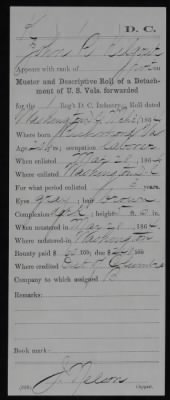 D. C.
Appears with rank of
Muster and Descriptive Roll of a Detachment of U. S. Vols. forwarded
for the 1 Reg't D. C. Infantry. Roll dated
Washington D. C. 186
Where born Richmond
Age 21 y'rs; occupation Laborer
When enlisted Mar 28, 186
Where enlisted Washington D C
For what period enlisted 3 years.
Eyes gray; hair brown
Complexion dark; height ft. in.
When mustered in Mar 28, 186
Where mustered in Washington
Bounty paid $ 100; due $ 100
Where credited Dist of Columbia
Company to which assigned
Remarks:
Book mark:
J. Nelson
Copyist.